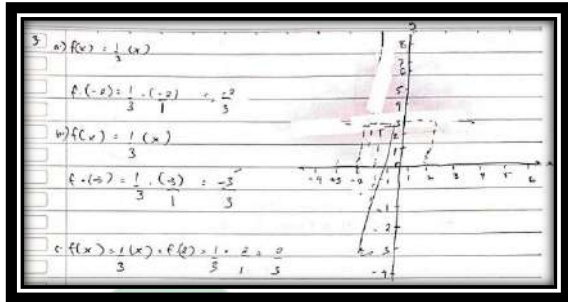 3 a.) f(x) = 1/3 (x)
f.(-2) = 1/3 . (-2)/1 = -2/3
b.) f(x) = 1/3 (x)
f.(-3) = 1/3 . (-3)/1 = -3/3
c. f(x) = 1/3 (x) = f(2) = 1/3 . 2/1 =
8
7
6
5
4
3
2
1
-4 -3 -2 -1 1 2 3 4 5 6
-1
-2
-3
-4